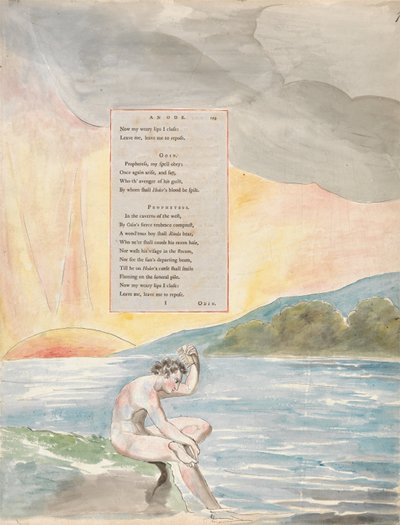 AN ODE.
Now my weary lips I close:
Leave me, leave me to repose.
ODIN.
Prophetess, my Spell obey:
Once again arise, and say,
Who th' avenger of his guilt,
By whom shall Hoder's blood be spilt.
PROPHETESS.
In the caverns of the west,
By Odin's fierce embrace comprest,
A wond'rous boy shall Rinda bear,
Who ne'er shall comb his raven hair,
Nor wash his visage in the stream,
Nor see the sun's departing beam,
Till he on Hoder's corse shall smile
Flaming on the funeral pile.
Now my weary lips I close:
Leave me, leave me to repose.
ODIN.